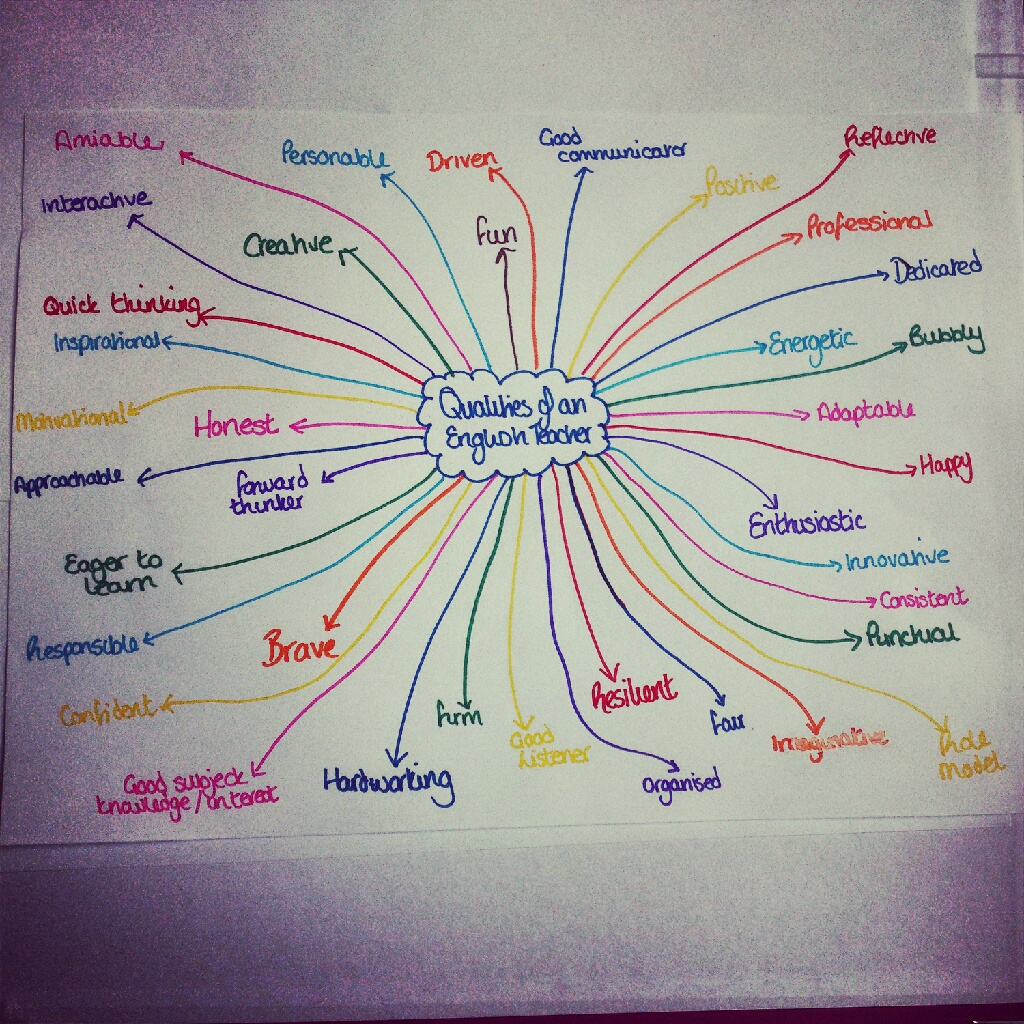 Qualities of an
English Teacher
Amiable
Personable
Driven
Good
communicator
Reflective
Interactive
Positive
Creative
Fun
Professional
Dedicated
Quick thinking
Inspirational
Energetic
Bubbly
Motivational
Honest
Adaptable
Approachable
forward
thinker
Happy
Enthusiastic
Eager to
learn
Innovative
Consistent
Responsible
Brave
Punctual
Confident
firm
Good
Listener
Resilient
fair
Imaginative
Role
model
Good subject
knowledge/interest
Hardworking
Organised